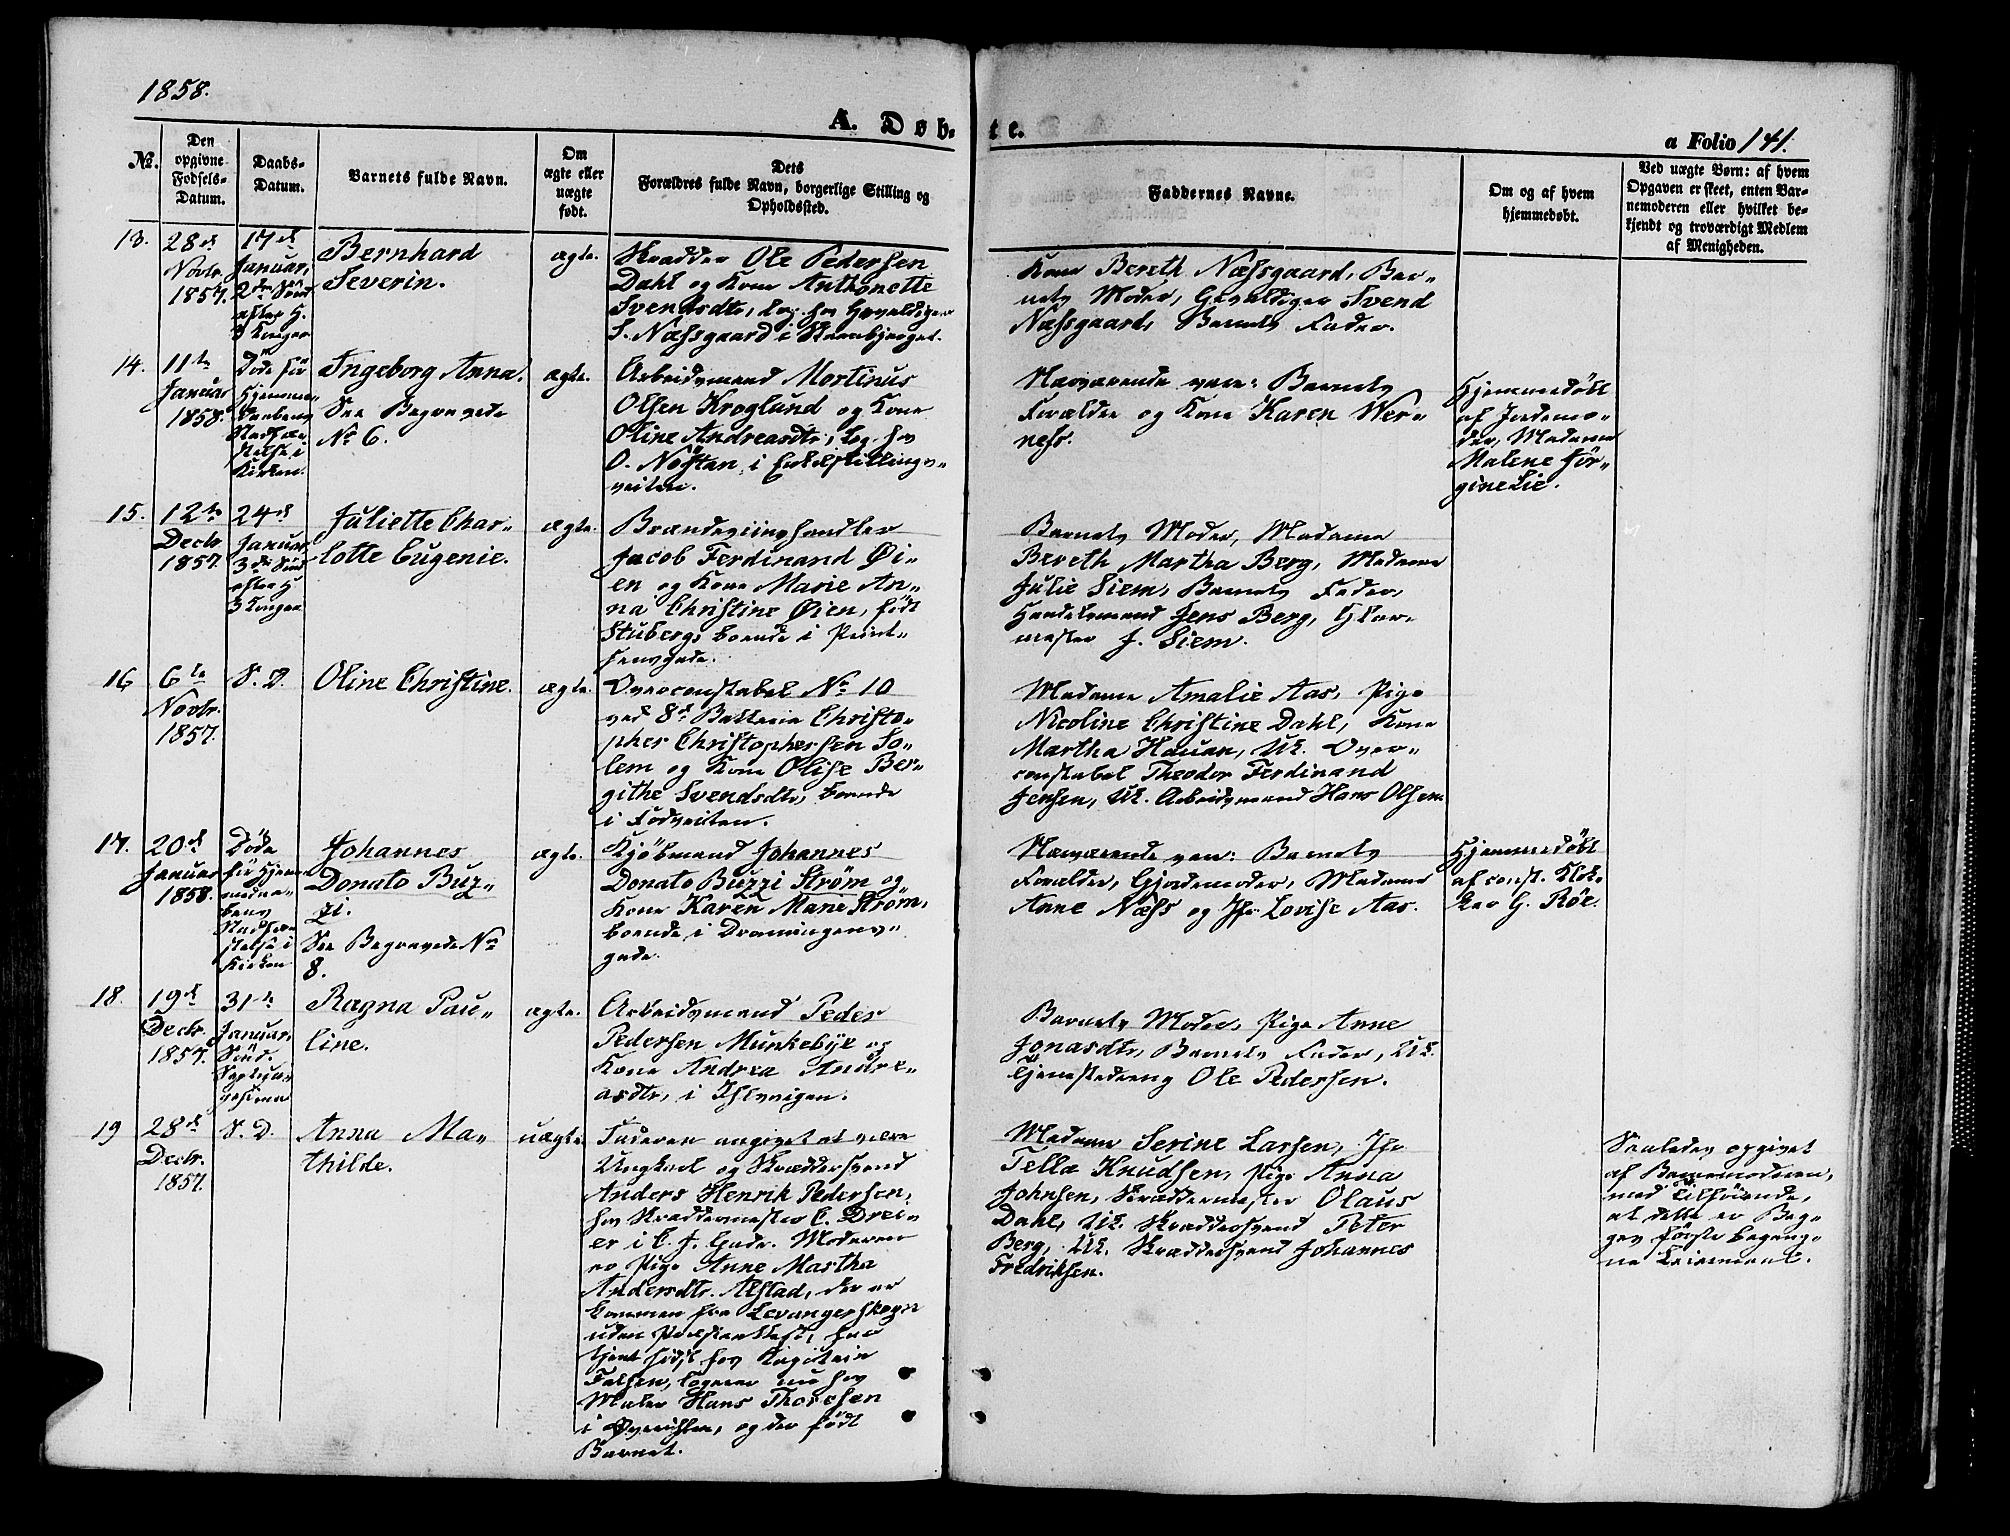 1858.
A. Døb-
te.
a Folio 141.
No.
Den
opgivne
Fødsels-
Datum.
Daabs-
Datum.
Barnets fulde Navn.
Om
ægte eller
uægte
født.
Dets
Forældres fulde Navn, borgerlige Stilling og
Opholdssted.
Faddernes Navne.
Om og af hvem
hjemmedøbt.
Ved uægte Børn: af hvem
Opgaven er skeet, enten Bar-
nemoderen eller hvilket be-
kjendt og troværdigt Medlem
af Menigheden.
13.
28d
Novbr.
1857.
17d
Januar,
2den Sønd.
efter H.
3 Konger
Bernhard
Severin.
ægte.
Skrædder Ole Pedersen
Dahl og Kone Anthonette
Svendsdtr, log. hos Gevaldiger
S. Næssgaard i Steenbjerget.
Kone Bereth Næssgaard, Bar-
nets Moder, Gevaldiger Svend
Næssgaard, Barnets Fader.
14.
11te
Januar
1858.
Døde før
Hjemme-
Daabens
Stadfæ-
stelse i
Kirken.
Ingeborg Anna.
See Begravede
No 6.
ægte.
Arbeidsmand Mortinus
Olsen Kroglund og Kone
Oline Andreasdtr, log. hos
O. Nøstan i Enkelskillings-
veiten.
Nærværende vare: Barnets
Forældre og Kone Karen Wer-
ness.
Hjemmedøbt
af Jordemo-
der, Madame
Malene Jør-
gine Lie.
15.
12te
Decbr
1857
24d
Januar
3die Sønd
efter H
3 Konger
Juliette Char-
lotte Eugenie.
ægte.
Brændeviinshandler
Jacob Ferdinand Øi-
en og Kone Marie An-
na Christine Øien, født
Stuberg, boende i Prind-
sensgade.
Barnets Moder, Madame
Bereth Martha Berg, Madame
Julie Siem, Barnets Fader,
Handelsmand Jens Berg, Glar-
mester J. Siem.
16
6te
Novbr.
1857.
S. D.
Oline Christine.
ægte.
Overconstabel No 10
ved 8d Batterie Christo-
pher Christophersen So-
lem og Kone Olise Ber-
githe Svendsdtr, boende
i Fodveiten.
Madame Amalie Aas, Pige
Nicoline Christine Dahl, Kone
Martha Hauan, Uk. Over-
constabel Theodor Ferdinand
Jensen, Uk. Arbeidsmand Hans Olsen
17.
20d
Januar
1858.
Døde
før Hjem-
medaa-
bens
Stadfæ-
stelse i
Kirken
Johannes
Donato Buz-
zi.
See Begravede No
8.
ægte.
Kjøbmand Johannes
Donato Buzzi Strøm og
Kone Karen Marie Strøm,
boende i Dronningens-
gade.
Nærværende vare: Barnets
Forældre, Gjordemoder, Madame
Anne Næss og Jfr Lovise Aas.
Hjemmedøbt
af const. Klok-
ker G. Røe.
18.
19d
Decbr.
1857.
31te
Januar,
Sønd.
Septua-
gesima
Ragna Pau-
line.
ægte.
Arbeidsmand Peder
Pedersen Munkebye og
Kone Andrea Andre-
asdtr, i Ihlsvigen.
Barnets Moder, Pige Anne
Jonasdtr, Barnets Fader, Uk.
Tjenestedreng Ole Pedersen.
19
28d
Decbr.
1857.
S. D.
Anna Ma-
thilde.
uægte.
Faderen angivet at være
Ungkarl og Skræddersvend
Anders Henrik Pedersen,
hos Skræddermester C. Drei-
er i C. J. Gade. Moderen
er Pige Anne Martha
Andersdtr. Alstad, der er
kommen fra Levangerskogn
uden Præsteattest, har
tjent sidst hos Kapitain
Falsen, logerer nu hos
Maler Hans Thoresen
i Øvreihlen, og der født
Barnet.
Madame Serine Larsen, Jfr
Tella Knudsen, Pige Anna
Johnsen, Skræddermester Olaus
Dahl, Uk. Skræddersvend Peter
Berg, Uk. Skræddersvend Johannes
Fredriksen.
Saaledes opgivet
af Barnemoderen,
med Tilføiende,
at dette er Beg-
ges første begang-
ne Leiermaal.